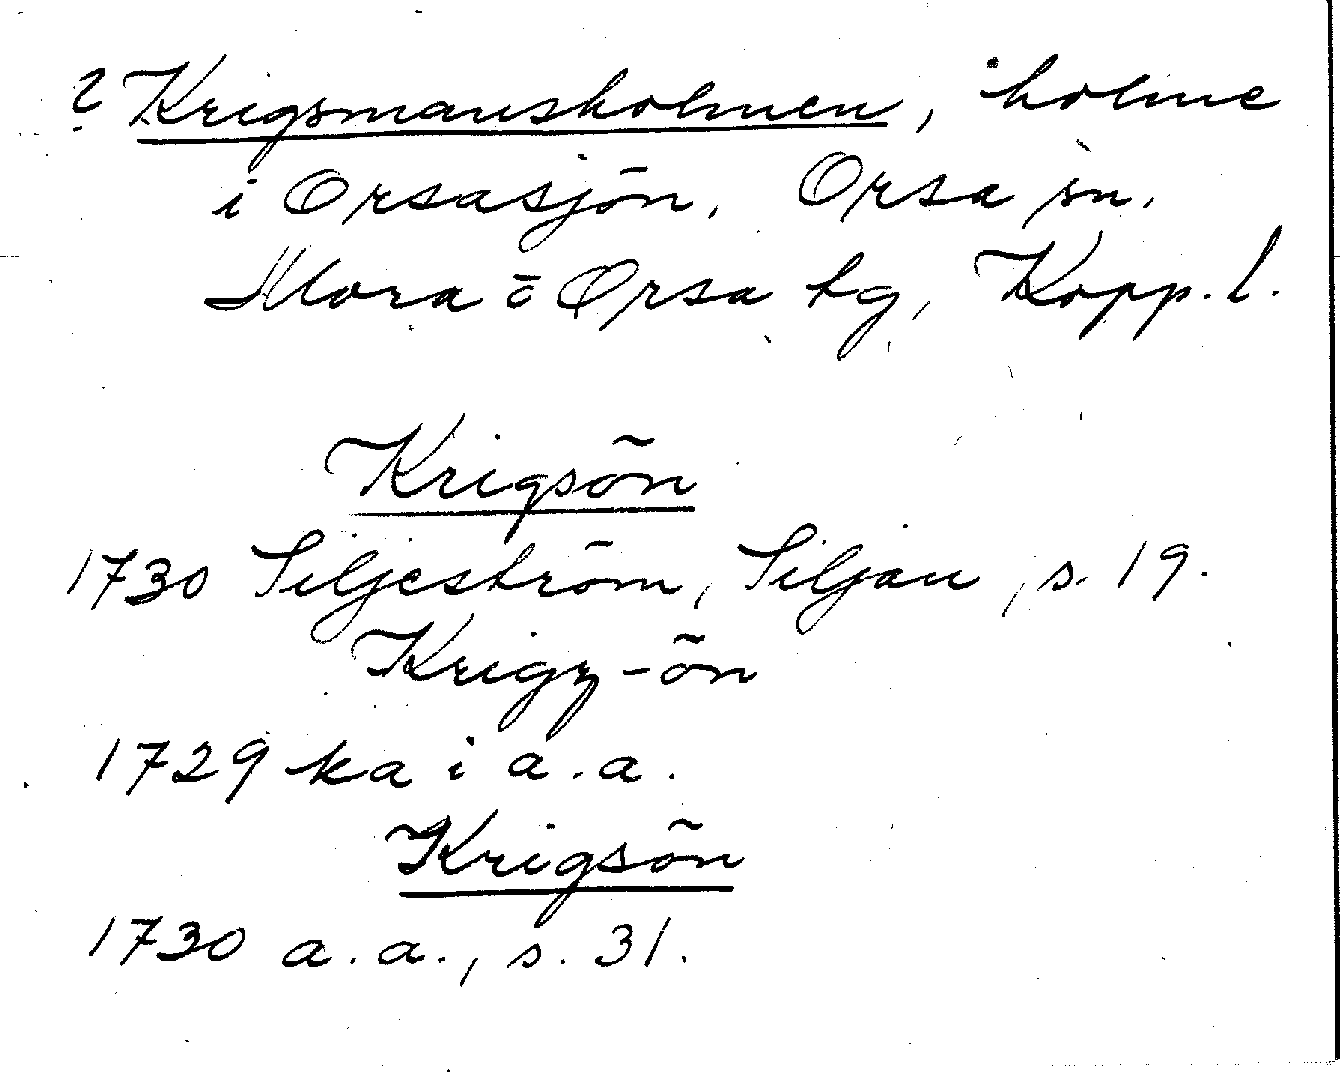 ? Krigsmansholmen, holme
i Orsasjön, Orsa sn.
Mora o Orsa tg, Kopp. l.
Krigsön
1730 Siljeström, Siljan, s. 19.
Krigz-ön
1729 ka i a.a.
Krigsön
1730 a.a., s. 31.